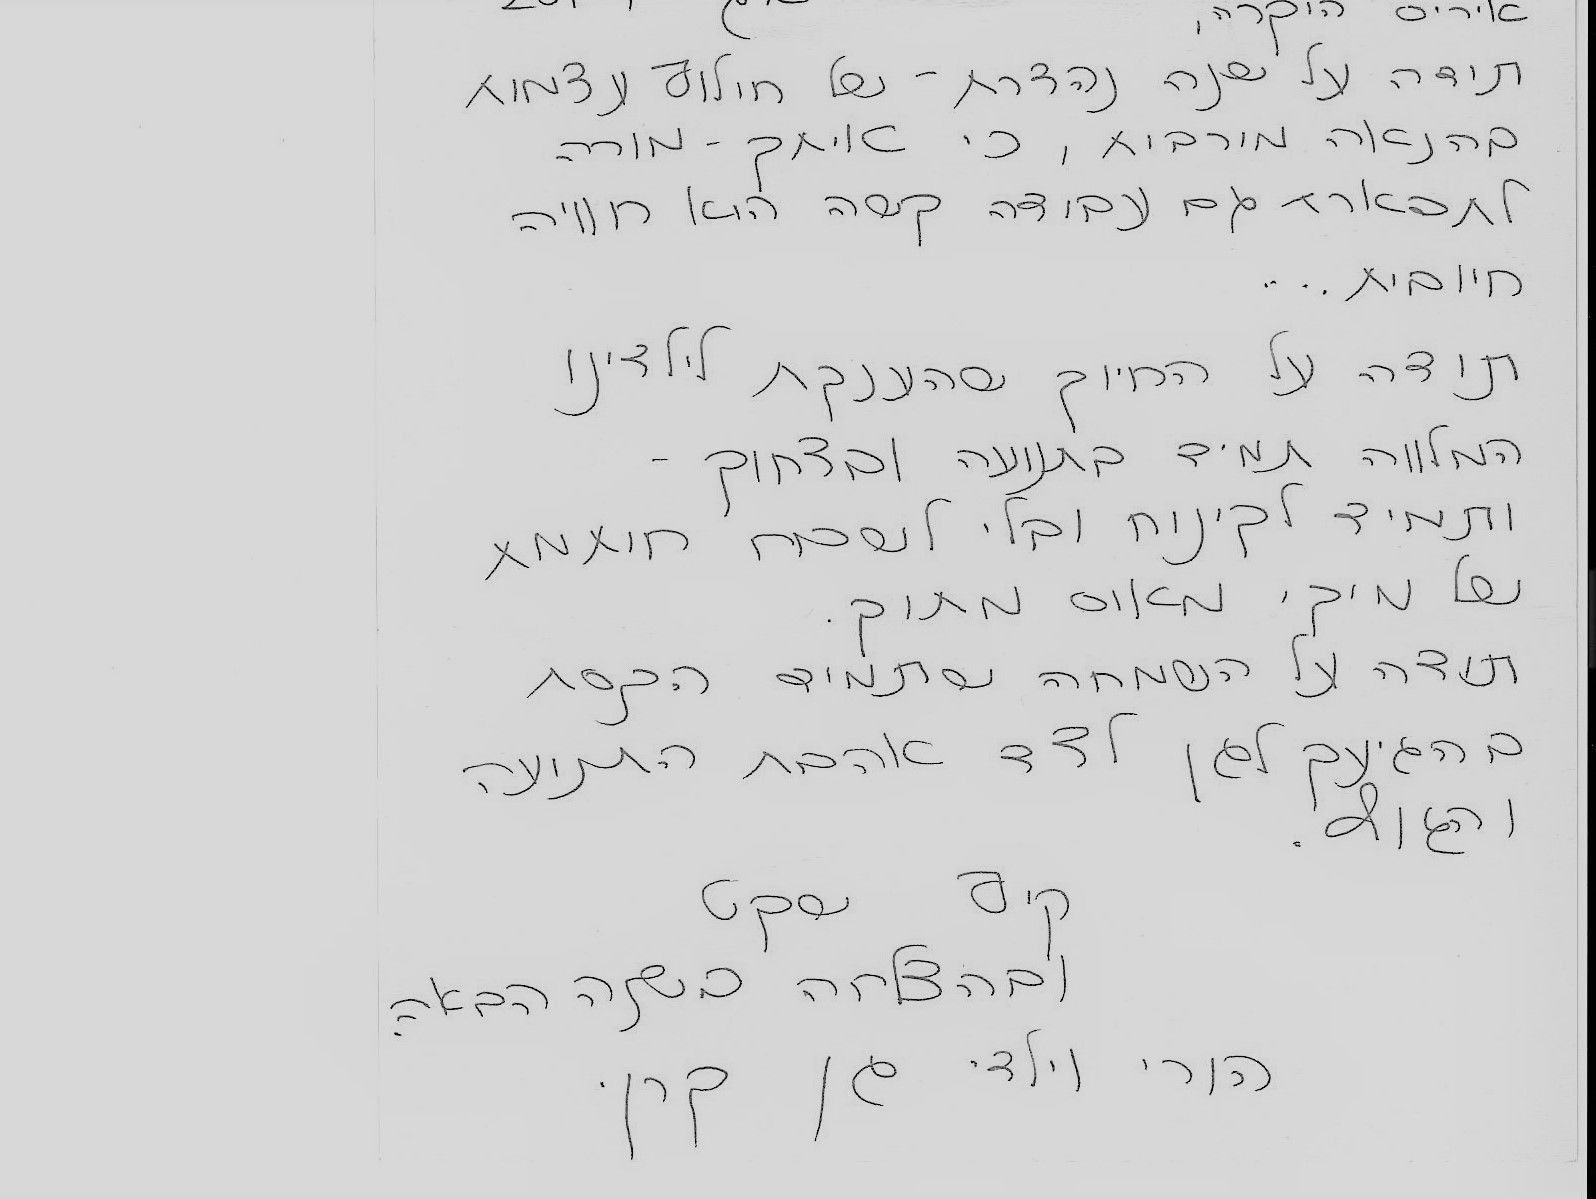 איריס היקרה,
תודה על שנה נהדרת - של חילוף עצמות
בהנאה מורבית, כי איתך - מורה
לתפארת גם עבודה קשה הוא חוויה
חיובית....
תודה על החיוך שהענקת לילדינו
המלווה תמיד בתנועה ובצחוק -
ותמיד לקינוח ובלי לשכוח חותמת
של מיקי מאוס מתוק.
תודה על השמחה שתמיד הקפת
בהגיעך לגן לצד אהבת התנועה
והגוף.
קיץ שקט
ובהצלחה בשנה הבאה
הורי וילדי גן קרן.